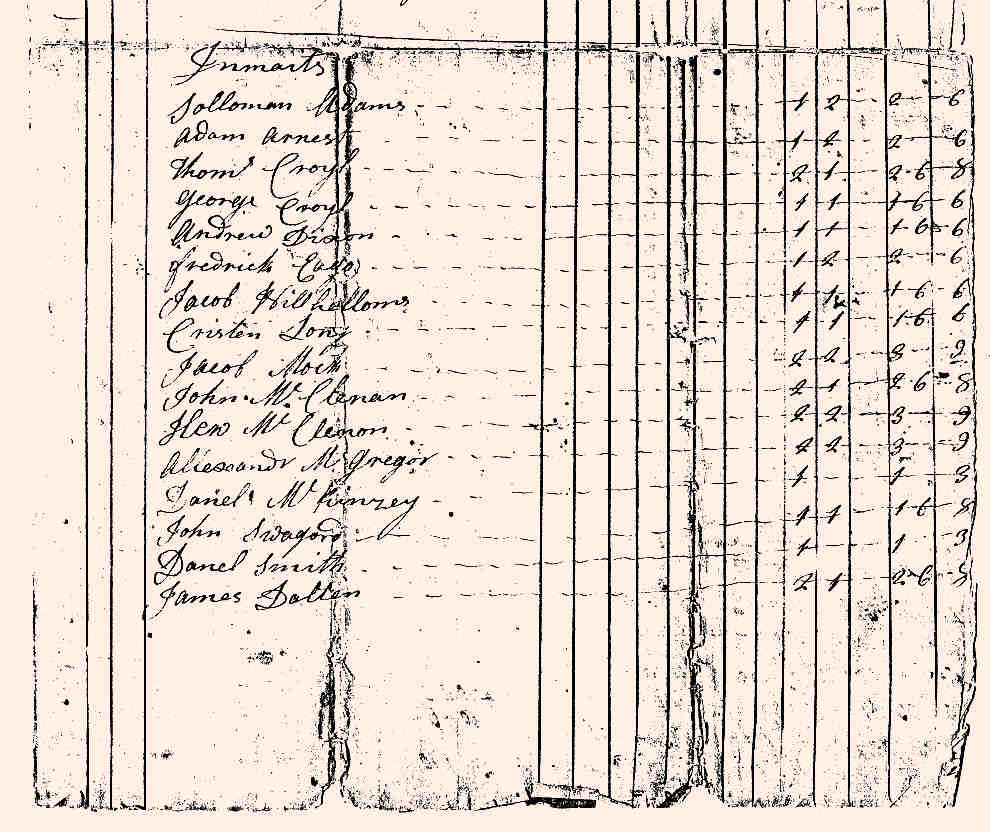 Inmaits
Solloman Adams 1 2 2 6
Adam Arnest 1 2 2 6
Thoms Croyl 2 1 2 6 8
George Croyl 1 1 1 6 6
Andrew Dixon 1 1 1 6 6
fredrick 1 2 2 6
Jacob Willhelloms 1 1 1 6 6
Cristen Long 1 1 1 6 6
Jacob 2 2 3 9
John Mc Clenan 2 1 2 6 8
Mc Clenon 2 2 3 9
Allexandr Mc Gregor 2 2 3 9
Daniel Mc Kinzey 1 1 3
John Swagord 1 1 1 6 8
Danel Smith 1 1 3
James Dalten 2 1 2 6 8